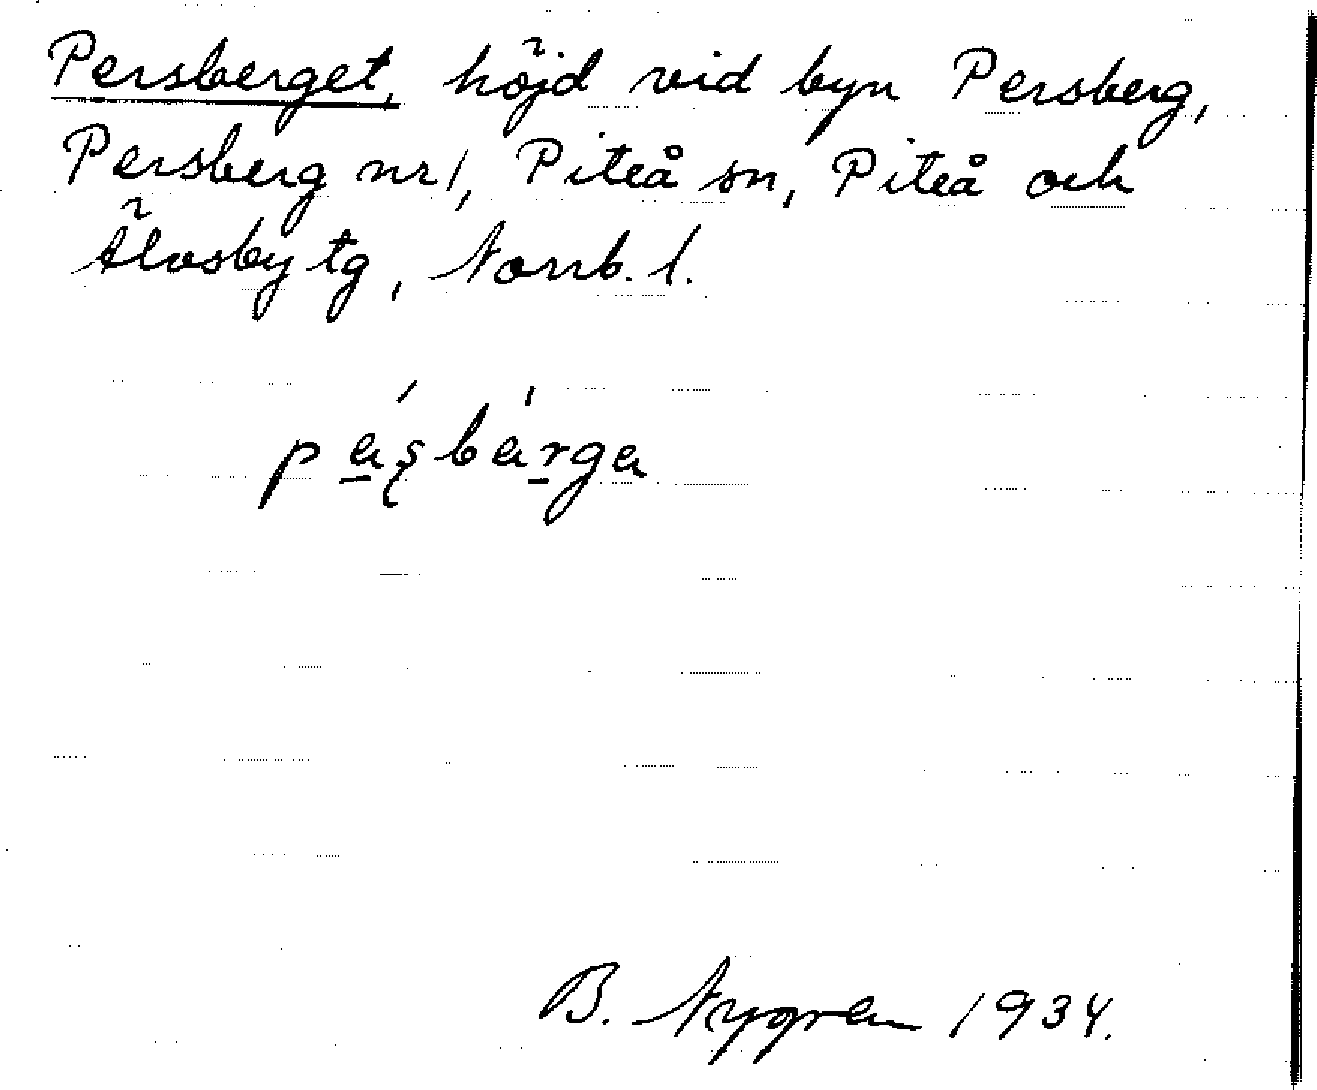 Persberget, höjd vid byn Persberg,
Persberg nr 1, Piteå sn, Piteå och
Älvsby tg, Norrb. l.
B. Nygren 1934.